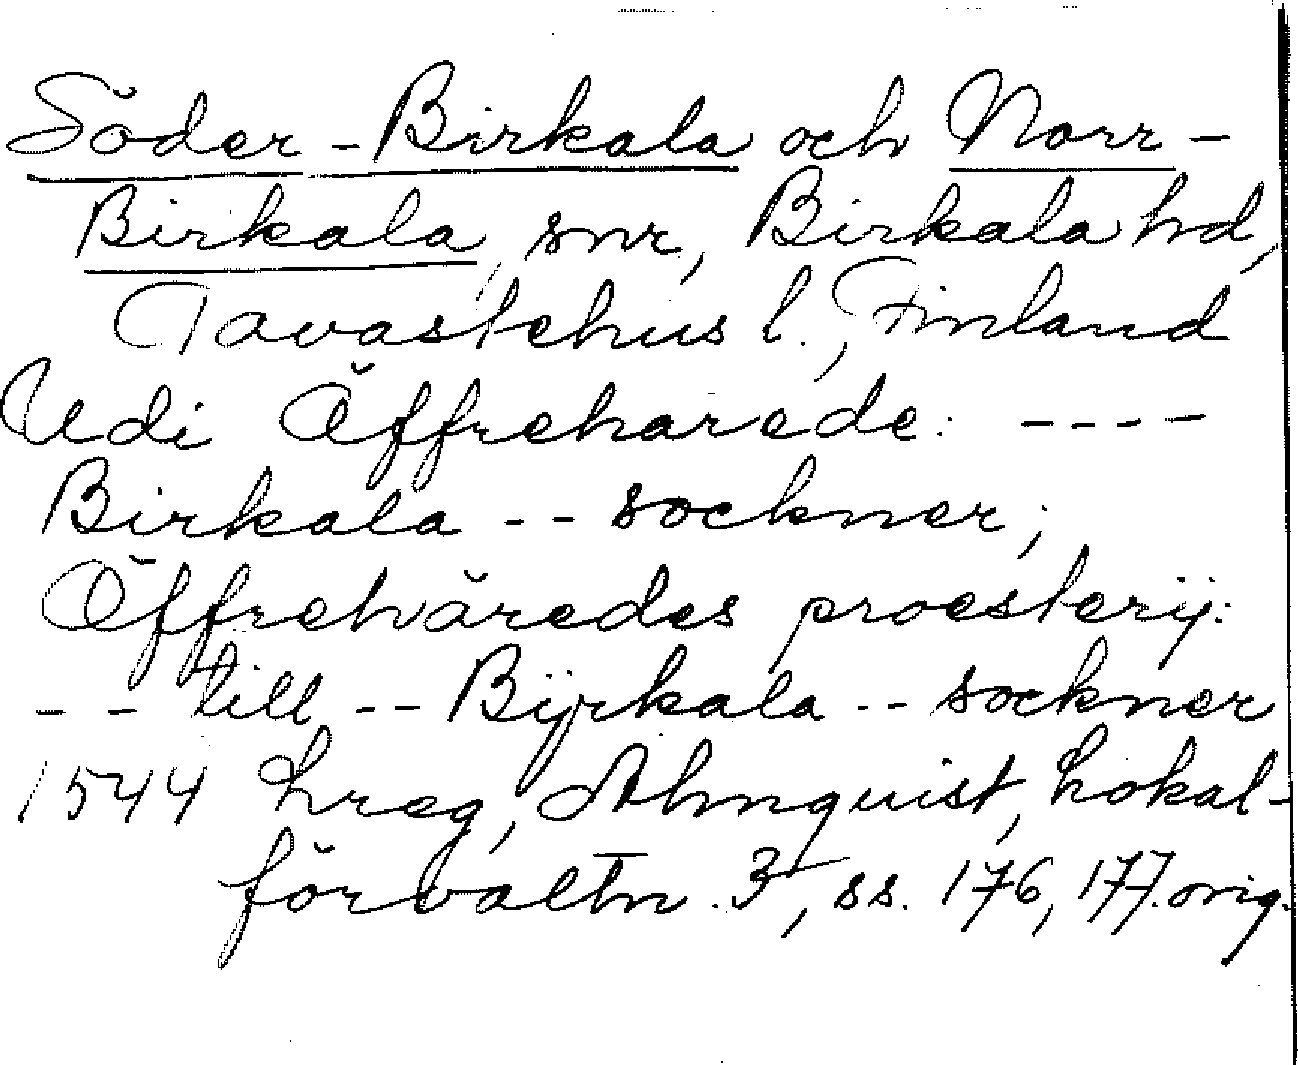 Söder-Birkala och Norr-
Birkala, snr, Birkala hd,
Tavastehus l., Finland
Udi Öffreharede: ----
Birkala -- sockner;
Öffrehäredes proesterij:
-- till -- Bÿrkala -- sockner
1544 Lreg, Almquist, Lokal-
förvaltn. 3, ss. 176, 177. orig.